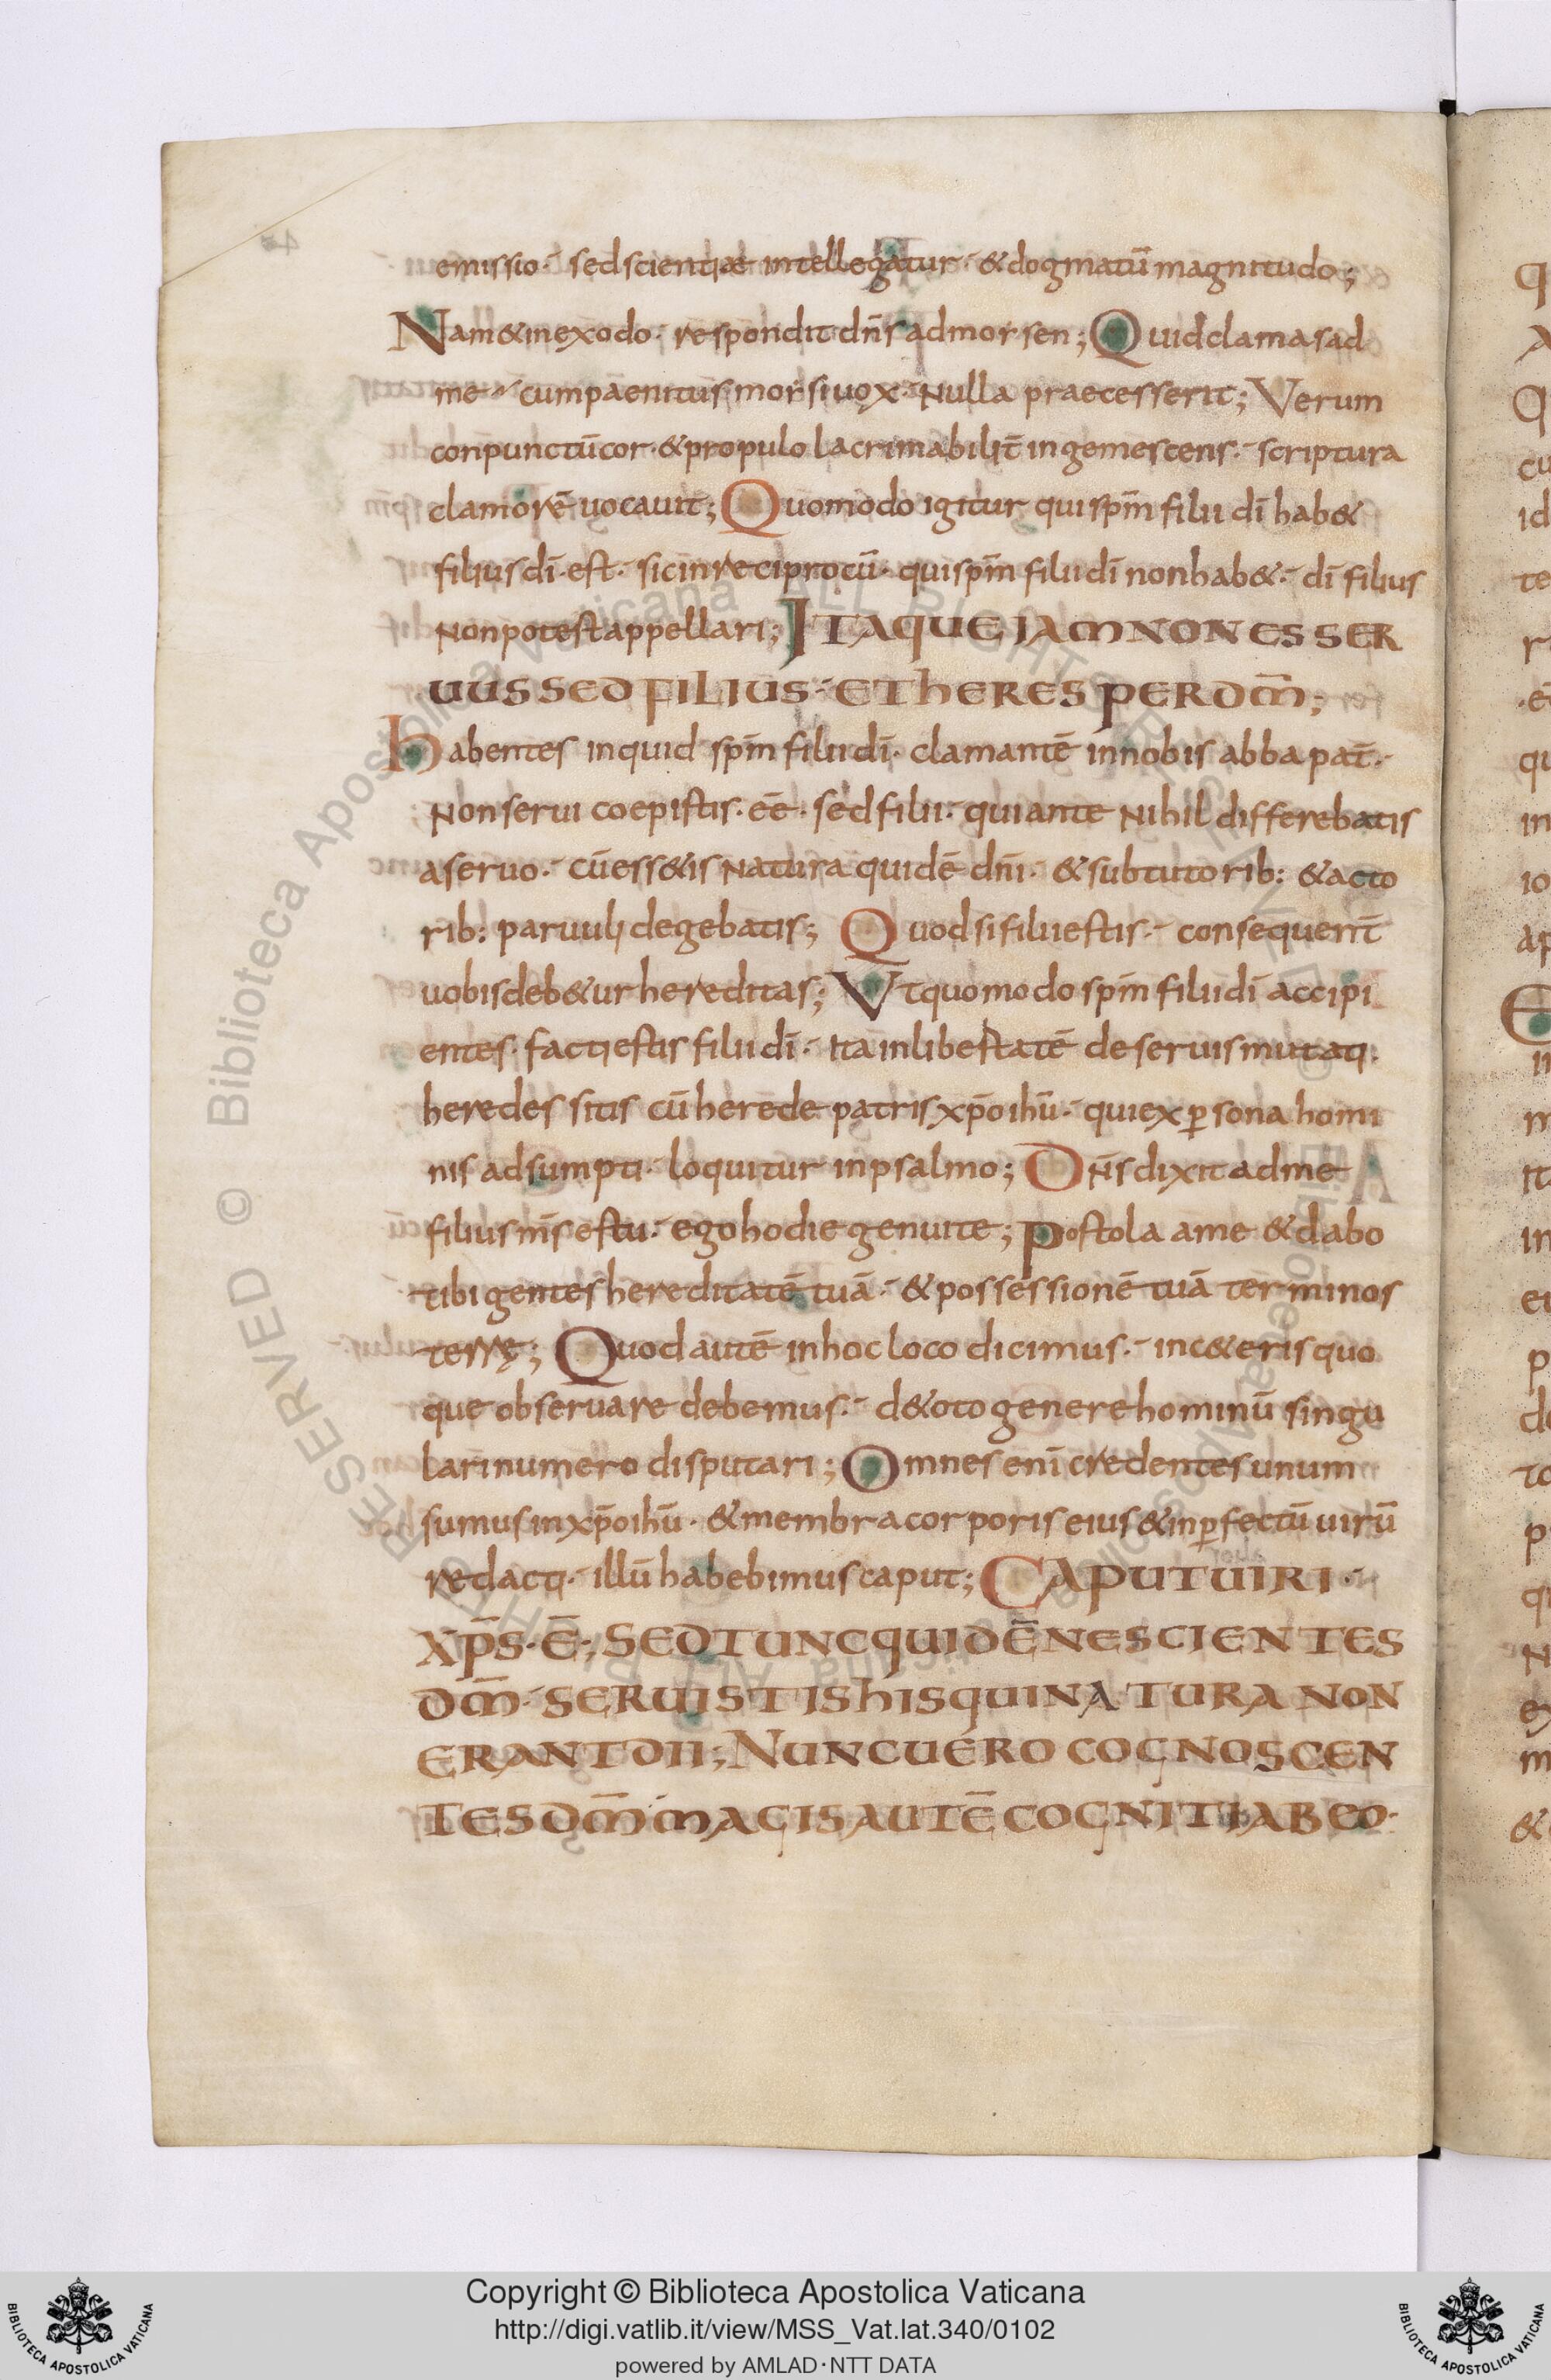 emissio· sed scientiae intellegatur· & dogmatū magnitudo;
Nam & in exodo· respondit dn̄s ad moysen; Quid clamas ad
me· cum paenitus moysi uox· nulla praecesserit; Verum
conpunctū cor· & pro pulo lacrimabilit̄ ingemescens· scriptura
clamorē uocauit; Quomodo igitur qui sp̄m filii dī hab&
filius dī· est· sic in reciprocū· qui sp̄m filii dī non hab&· dī filius
non potest appellari; ITAQUE IAM NON ES SER
UUS SED FILIUS· ET HERES PER DM̄;
habentes inquid sp̄m filii dī· clamantē in nobis abba pat̄·
Non serui coepistis· eē· sed filii· qui ante nihil differebatis
a seruo· cū ess&is natura quidē dn̄i· & sub tutorib: & acto
rib: paruuli degebatis; Quod si filii estis· consequent̄
uobis deb&ur hereditas; Vt quomodo sp̄m filii dī accipi
entes· facti estis filii dī· ita in libertatē de seruis mutati·
heredes sitis cū herede patris xp̄o ihū· qui ex p̱sona homi
nis adsumpti· loquitur in psalmo; Dn̄s dixit ad me
filius m̄s es tu· ego hodie genui te; Postola a me & dabo
tibi gentes hereditatē tuā· & possessionē tuā terminos
terrę; Quod autē in hoc loco dicimus· in c&eris quo
que obseruare debemus· de toto genere hominū singu
lari numero disputari; Omnes enī credentes unum
sumus in xp̄o ihū· & membra corporis eius & in p̱fectū uirū
redacti· illū habebimus caput; CAPUT UIRI·
XP̄S· Ē·; SED TUNC QUIDĒ NESCIENTES
DM̄· SERUISTIS HIS QUI NATURA NON
ERANT DII; NUNC UERO COGNOSCEN
TES DM̄ MAGIS AUTĒ COGNITI AB EO·
Copyright © Biblioteca Apostolica Vaticana
http://digi.vatlib.it/view/MSS_Vat.lat.340/0102
powered by AMLAD·NTT DATA